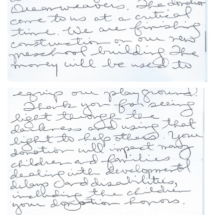 Dreamweavers. The donation
came to us at a critical
time. We are finishing
construction on our new
preschool building. The
money will be used to
equip our playground!
Thank you for seeing
light through the
darkness and using that
light to help others. Your
donation will impact many
children and families
dealing with developmental
delays and disabilities,
including the children
your donation honors.